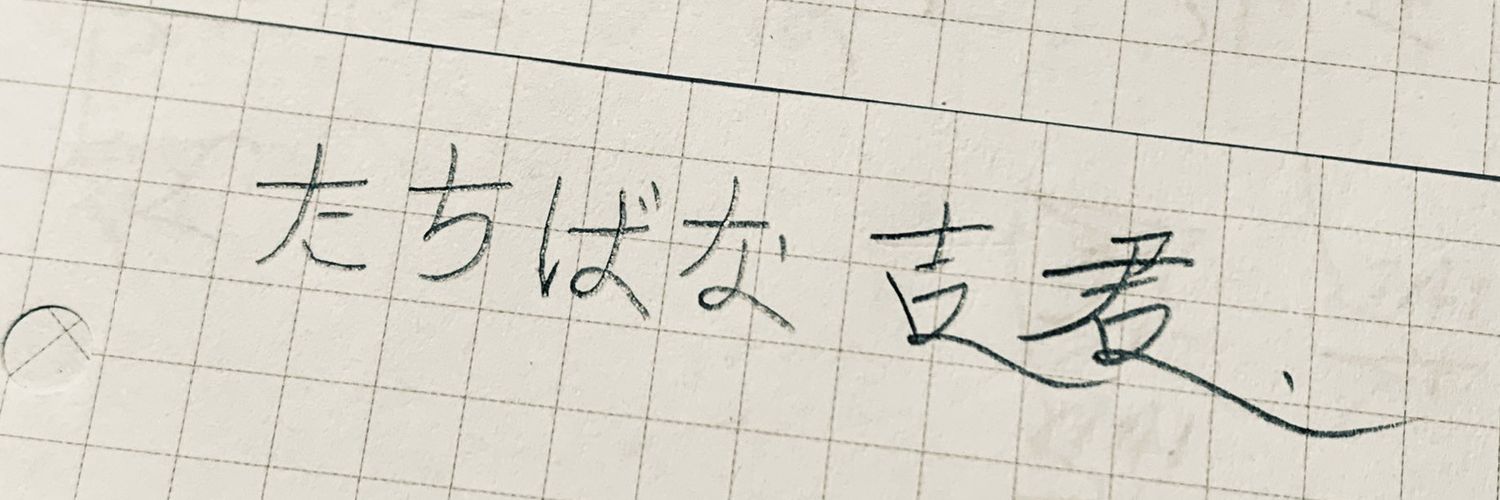 たちばな 吉君、